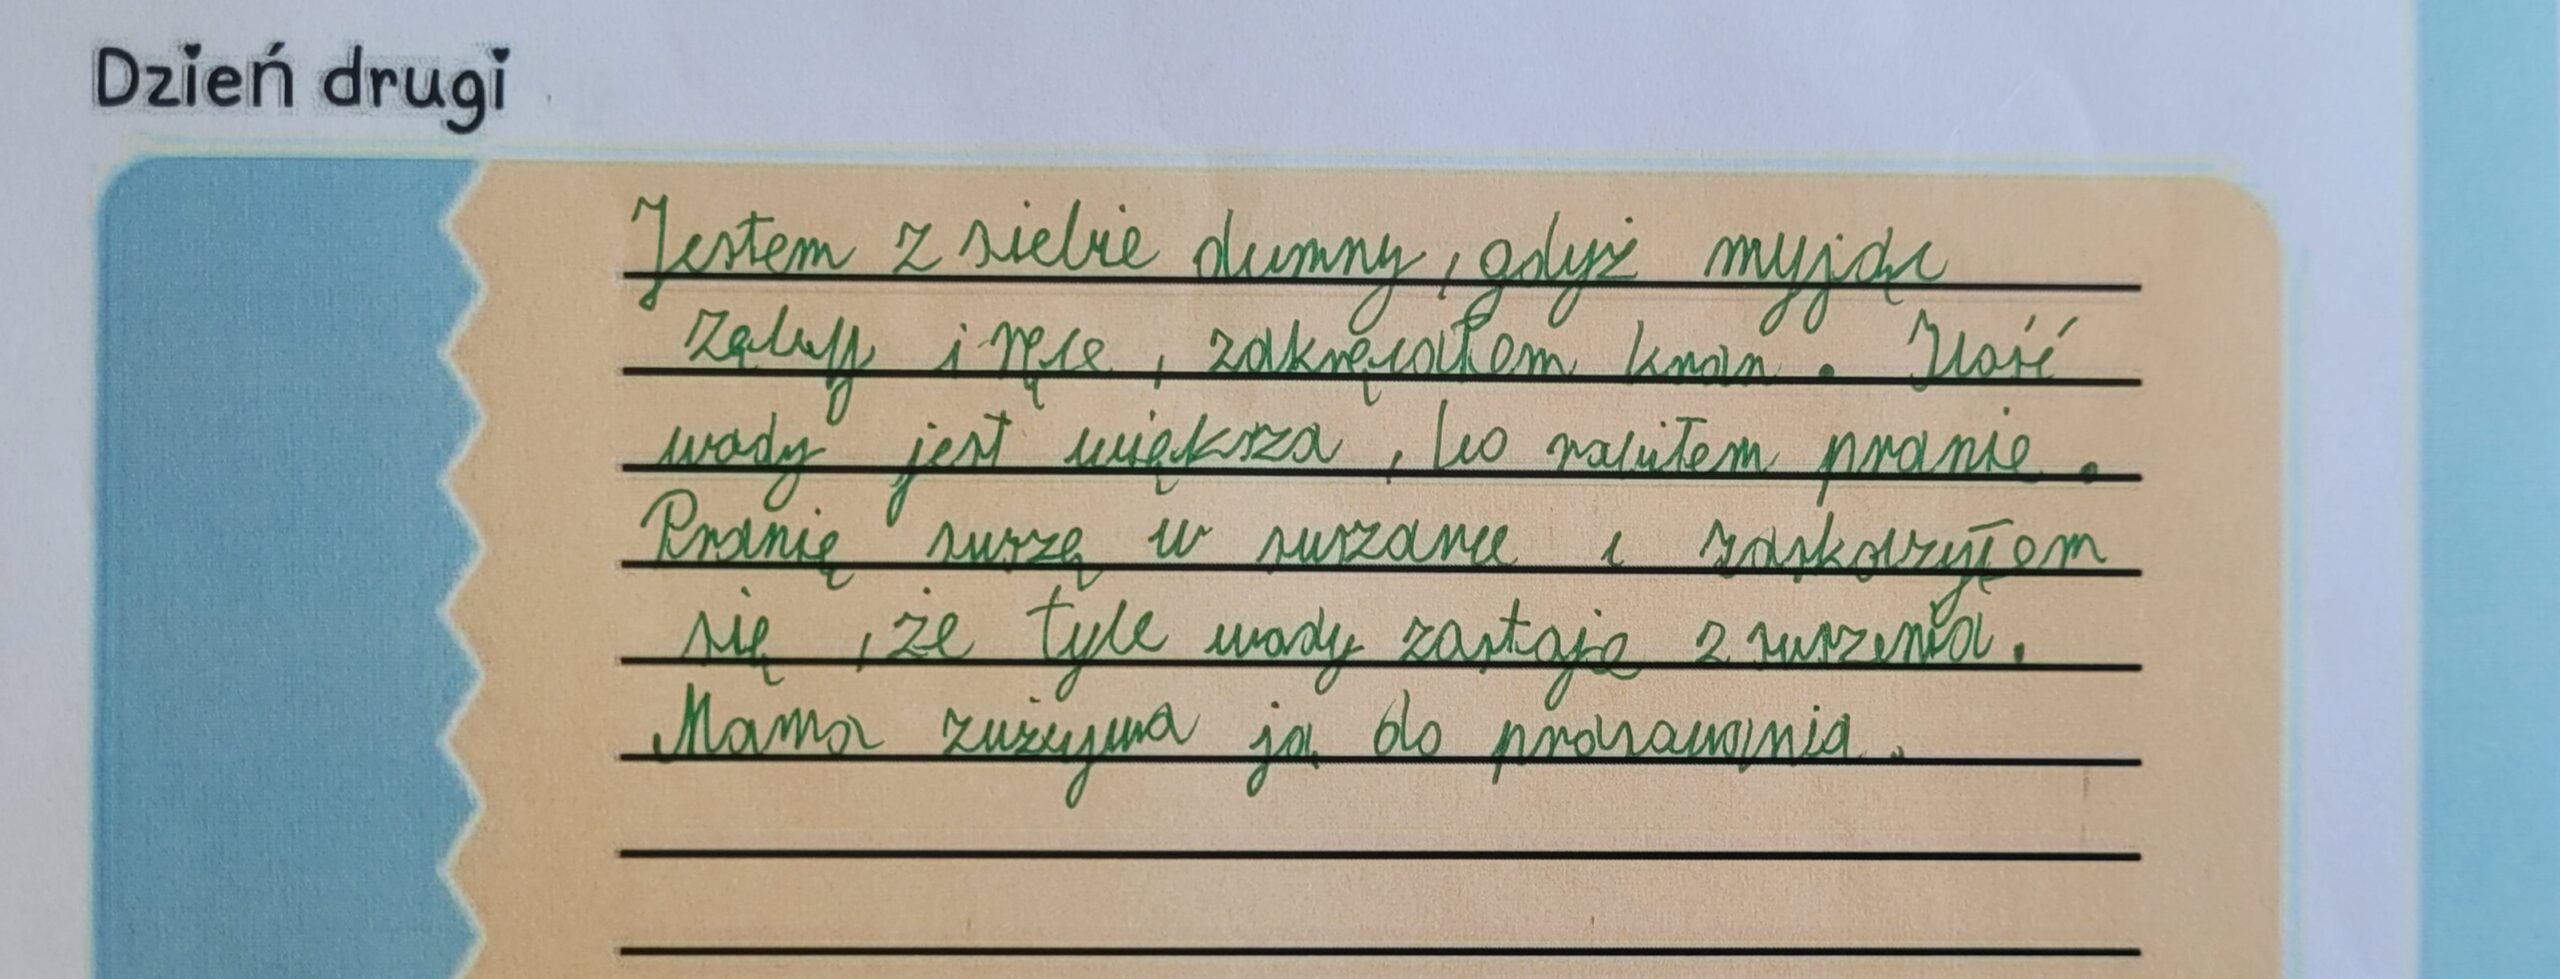 Dzień drugi
Jestem z siebie dumny, gdyż myjąc
zęby i ręce, zakręcałem kran. Ilość
wody jest większa, bo robiłem pranie.
Pranię suszę w suszarce i zaskoczyłem
się, że tyle wody zostaję z suszenia.
Mama zużywa ją do prasowania.